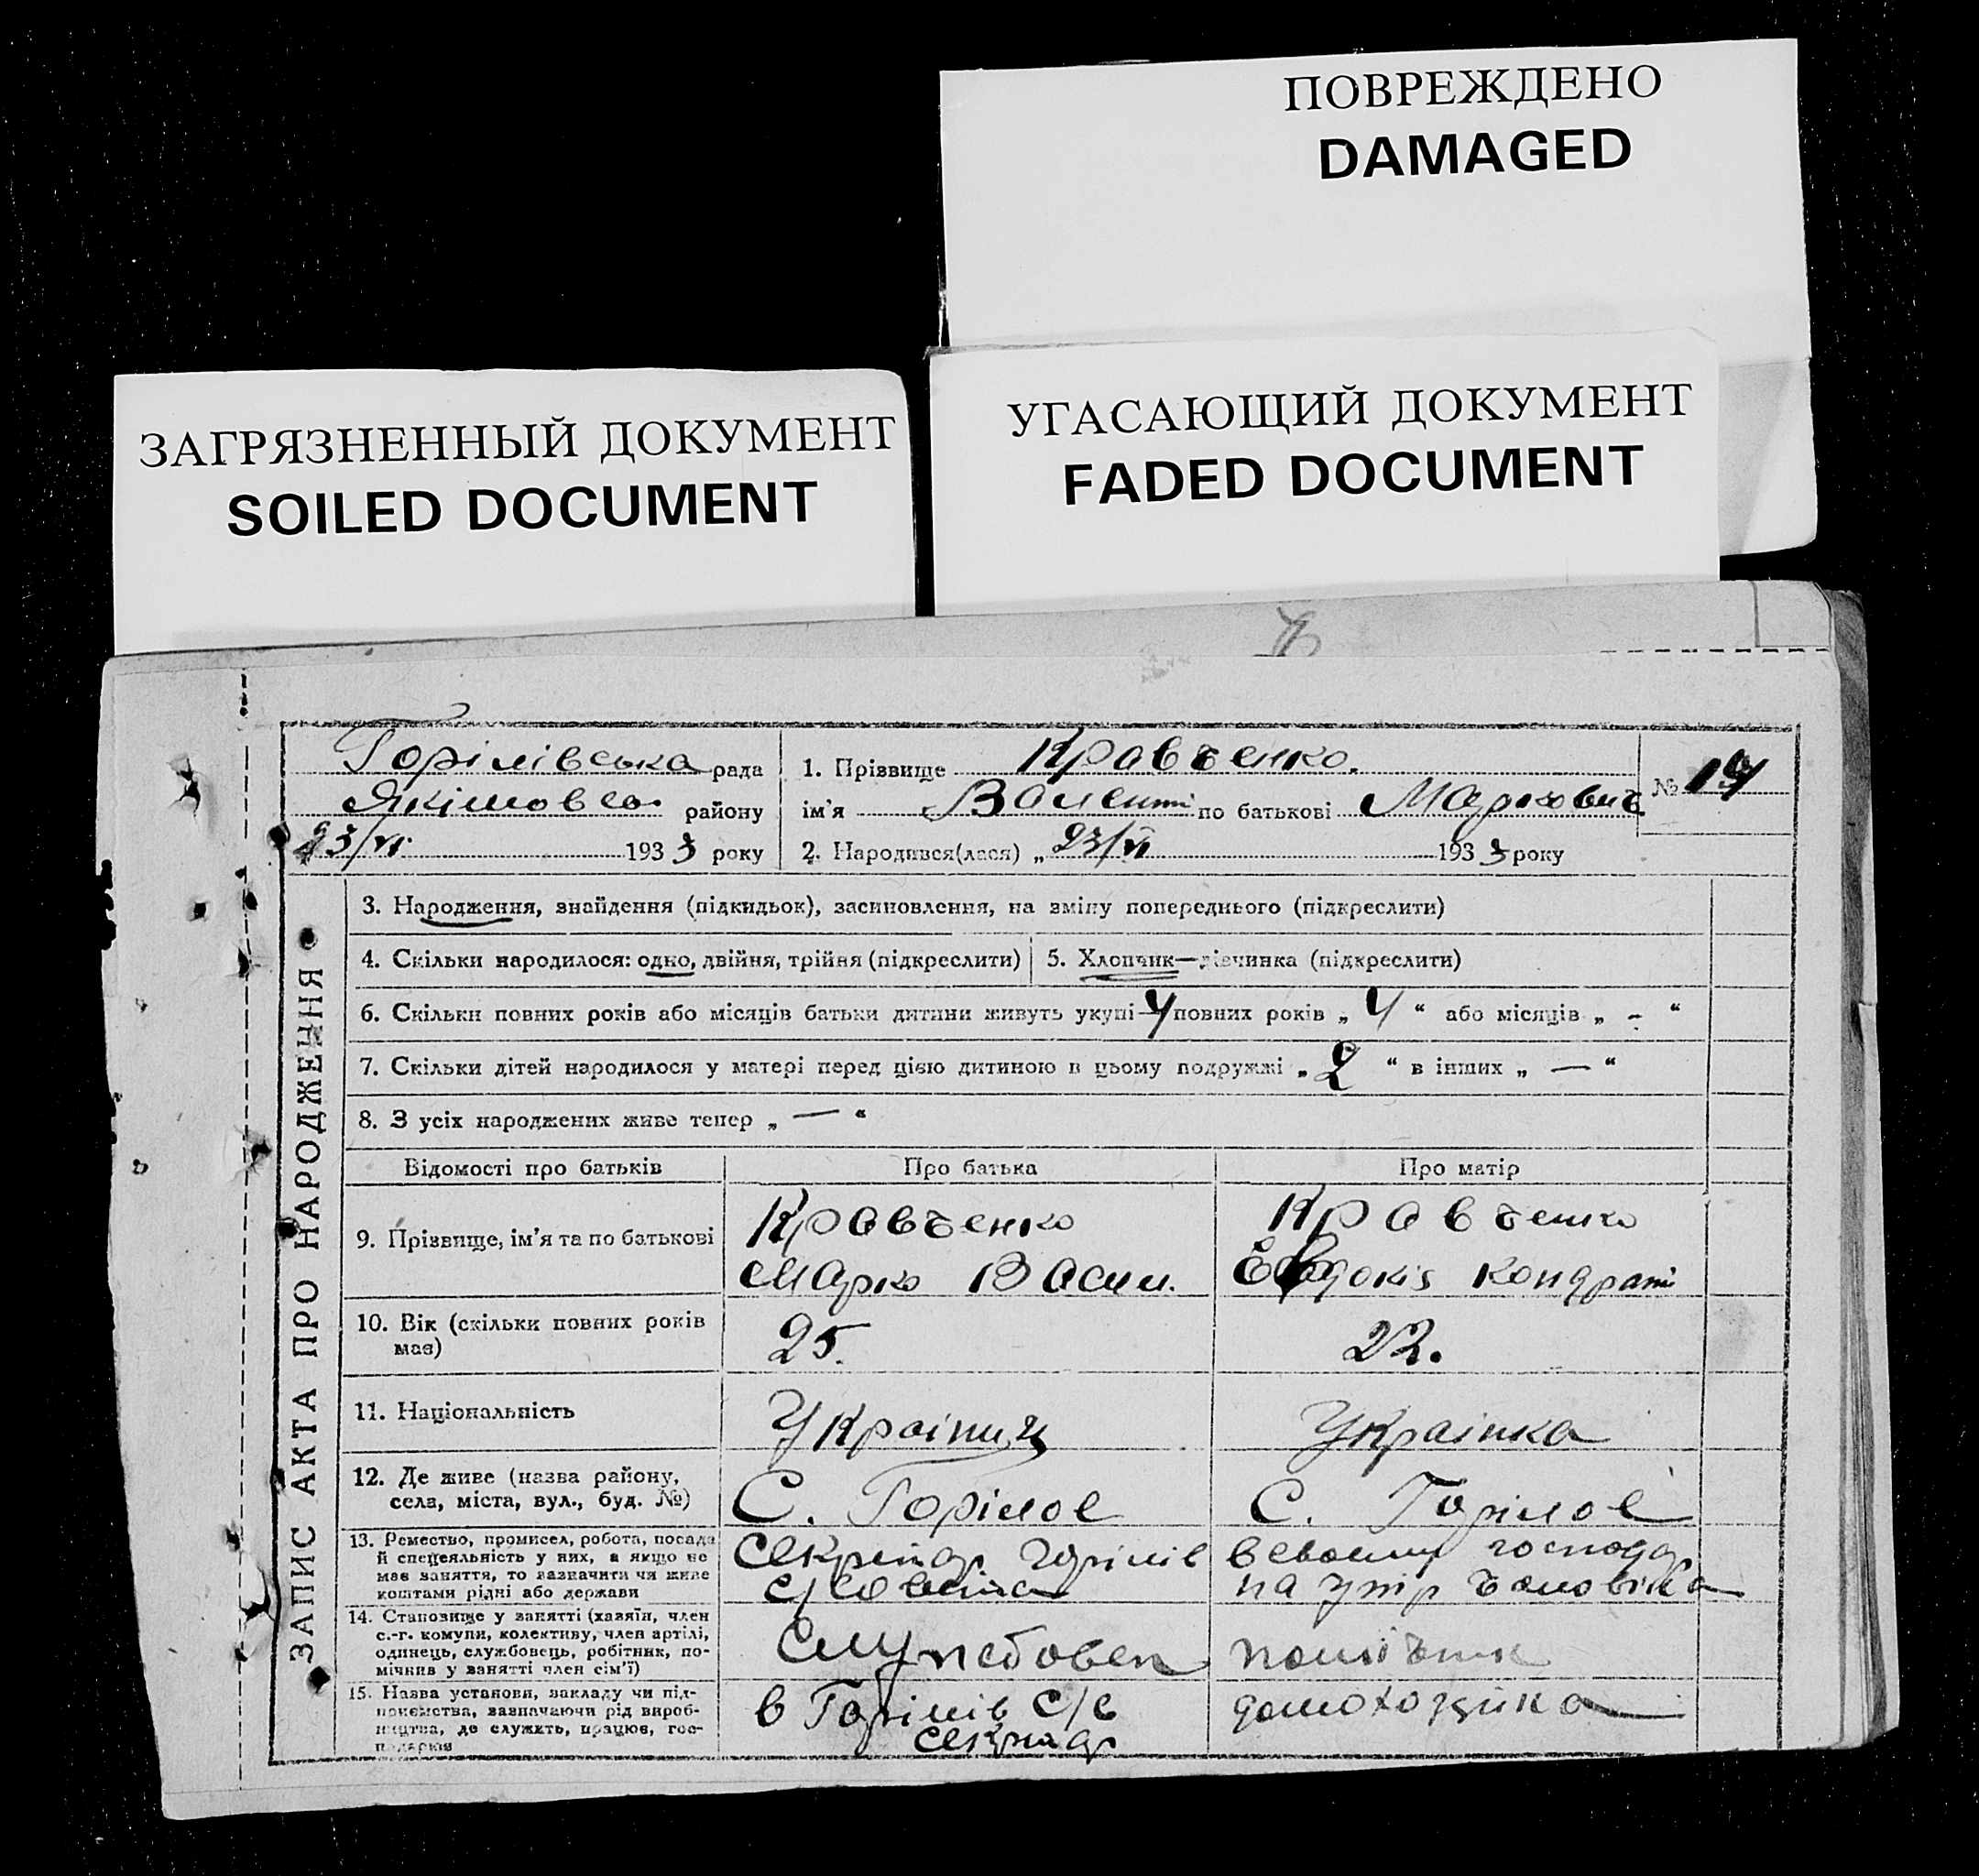 ПОВРЕЖДЕНО
DAMAGED
ЗАГРЯЗНЕННЫЙ ДОКУМЕНТ
SOILED DOCUMENT
УГАСАЮЩИЙ ДОКУМЕНТ
FADED DOCUMENT
Горілівська рада
Якімовсь району
23/VI 1933 року
1. Прізвище Кравченко.
ім'я Валенті по батькові Маркович
2. Народився(лася) „ 23/VI 1933 року
№
ЗАПИС АКТА ПРО НАРОДЖЕННЯ
3. Народження, знайдення (підкидьок), засиновлення, на зміну попереднього (підкреслити)
4. Скільки народилося: одно, двійня, трійня (підкреслити)
5. Хлопчик—дівчинка (підкреслити)
6. Скільки повних років або місяців батьки дитини живуть укупі 4 повних років „ 4 “ або місяців „ - “
7. Скільки дітей народилося у матері перед цією дитиною в цьому подружжі „ 2 “ в інших „ — “
8. З усіх народжених живе тепер „ — “
Відомості про батьків
Про батька
Про матір
9. Прізвище, ім'я та по батькові
Кравченко
Марко Васил.
Кравченко
Євдокія Кондраті
10. Вік (скільки повних років
має)
25.
22.
11. Національність
Українц
Українка
12. Де живе (назва району,
села, міста, вул., буд. №)
С. Горілое
С. Горілое
13. Ремество, промисел, робота, посада
й спецеяльність у них, а якщо не
має заняття, то зазначити чи живе
коштами рідні або держави
Секритар Горілів
с/совета
в своему господар
на утр чоловіка
14. Становище у занятті (хазяїн, член
с.-г. комуни, колективу, член артілі,
одинець, службовець, робітник, по-
мічник у занятті член сім'ї)
Службовец
помічник
15. Назва установи, закладу чи під-
приємства, зазначаючи рід вироб-
ництва, де служить, працює, гос-
подарює
в Горілів С/с
секритар
домохозяйка